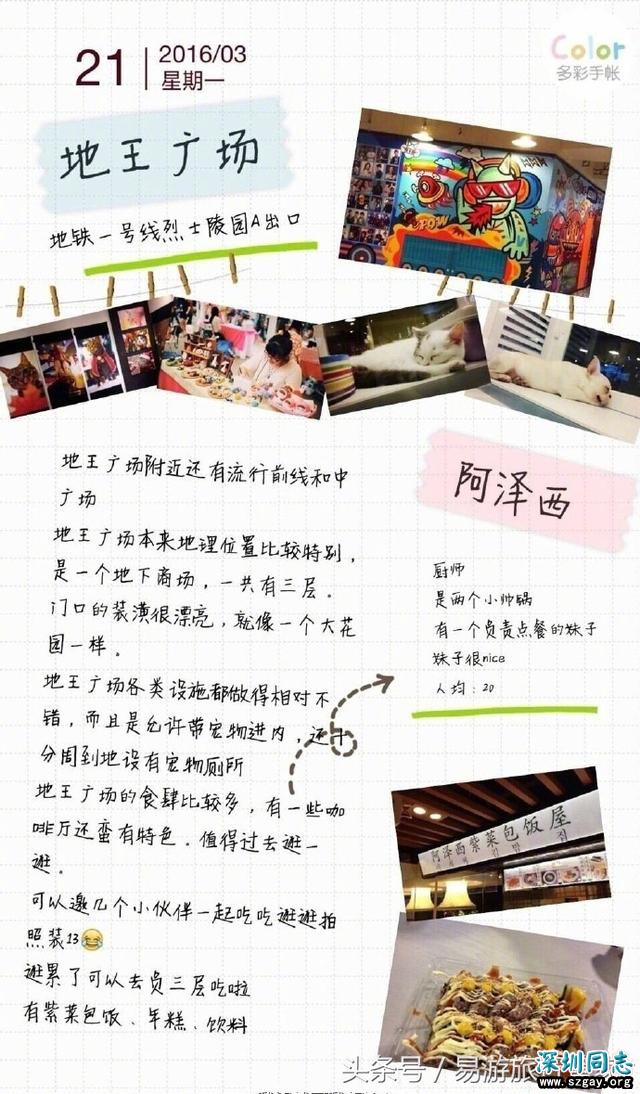 21
2016/03
星期一
Color
多彩手帐
地王广场
地铁一号线烈士陵园A出口
地王广场附近还有流行前线和中
广场
地王广场本来地理位置比较特别，
是一个地下商场，一共有三层。
门口的装潢很漂亮，就像一个大花
园一样。
地王广场各类设施都做得相对不
错，而且是允许带宠物进内，还十
分周到地设有宠物厕所
地王广场的食肆比较多，有一些咖
啡厅还蛮有特色。值得过去逛一
逛。
可以邀几个小伙伴一起吃吃逛逛拍
照装13😂
逛累了可以去负三层吃啦
有紫菜包饭、年糕、饮料
阿泽西
厨师
是两个小帅锅
有一个负责点餐的妹子
妹子很nice
人均：20
阿泽西紫菜包饭屋
头条号／易游旅
深圳同志
www.szgay.org